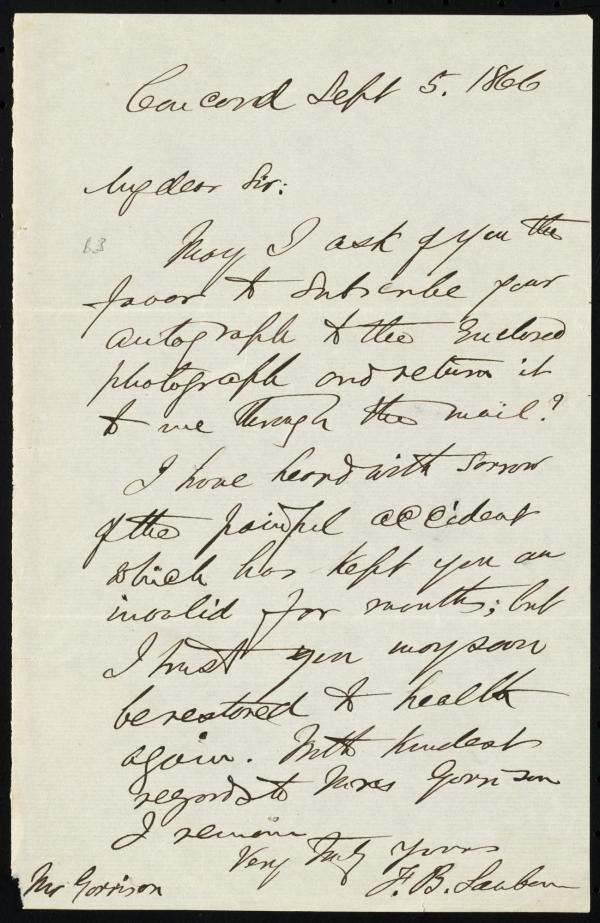 Concord Sept 5. 1866
My dear Sir:
63
May I ask of you the
favor to subscribe your
autograph to the enclosed
photograph and return it
to me through the mail?
I have heard with sorrow
of the painful accident
which has kept you an
invalid for months; but
I trust you may soon
be restored to health
again. With kindest
regards to Miss Garrison
I remain
Very Truly Yours
F. B. Sanborn
Mr Garrison